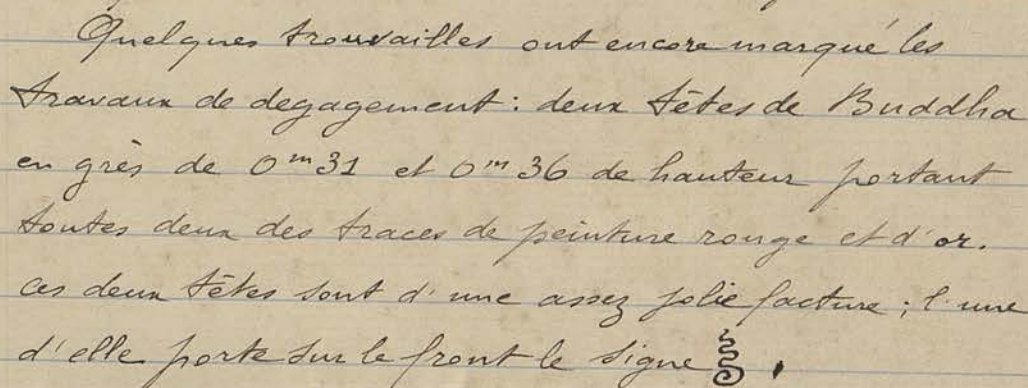 Quelques trouvailles ont encore marqué les
travaux de degagement : deux têtes de Buddha
en grès de 0m31 et 0m36 de hauteur portant
toutes deux des traces de peinture rouge et d'or.
ces deux têtes sont d'une assez jolie facture ; l'une
d'elle porte sur le front le signe .